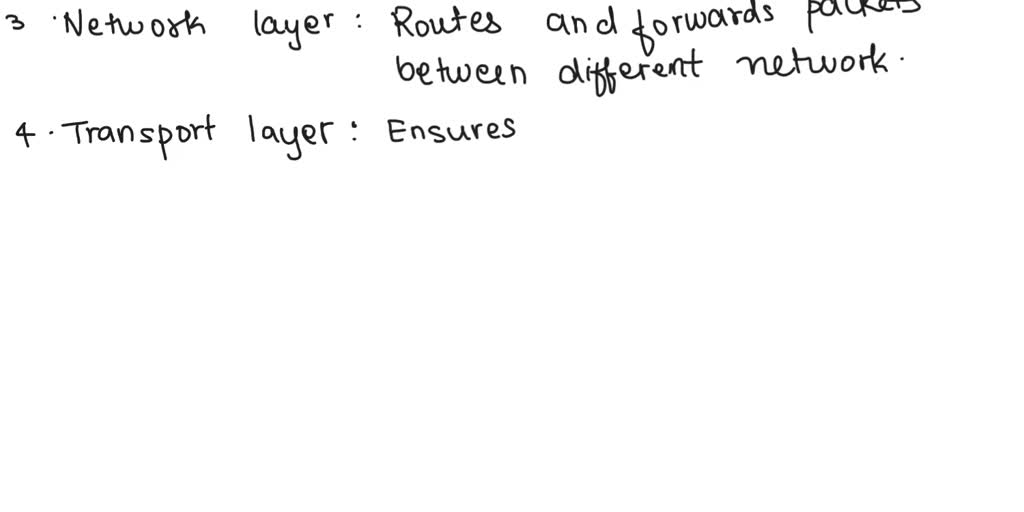 3 · Network layer : Routes and forwards packets
between different network.
4 · Transport layer : Ensures